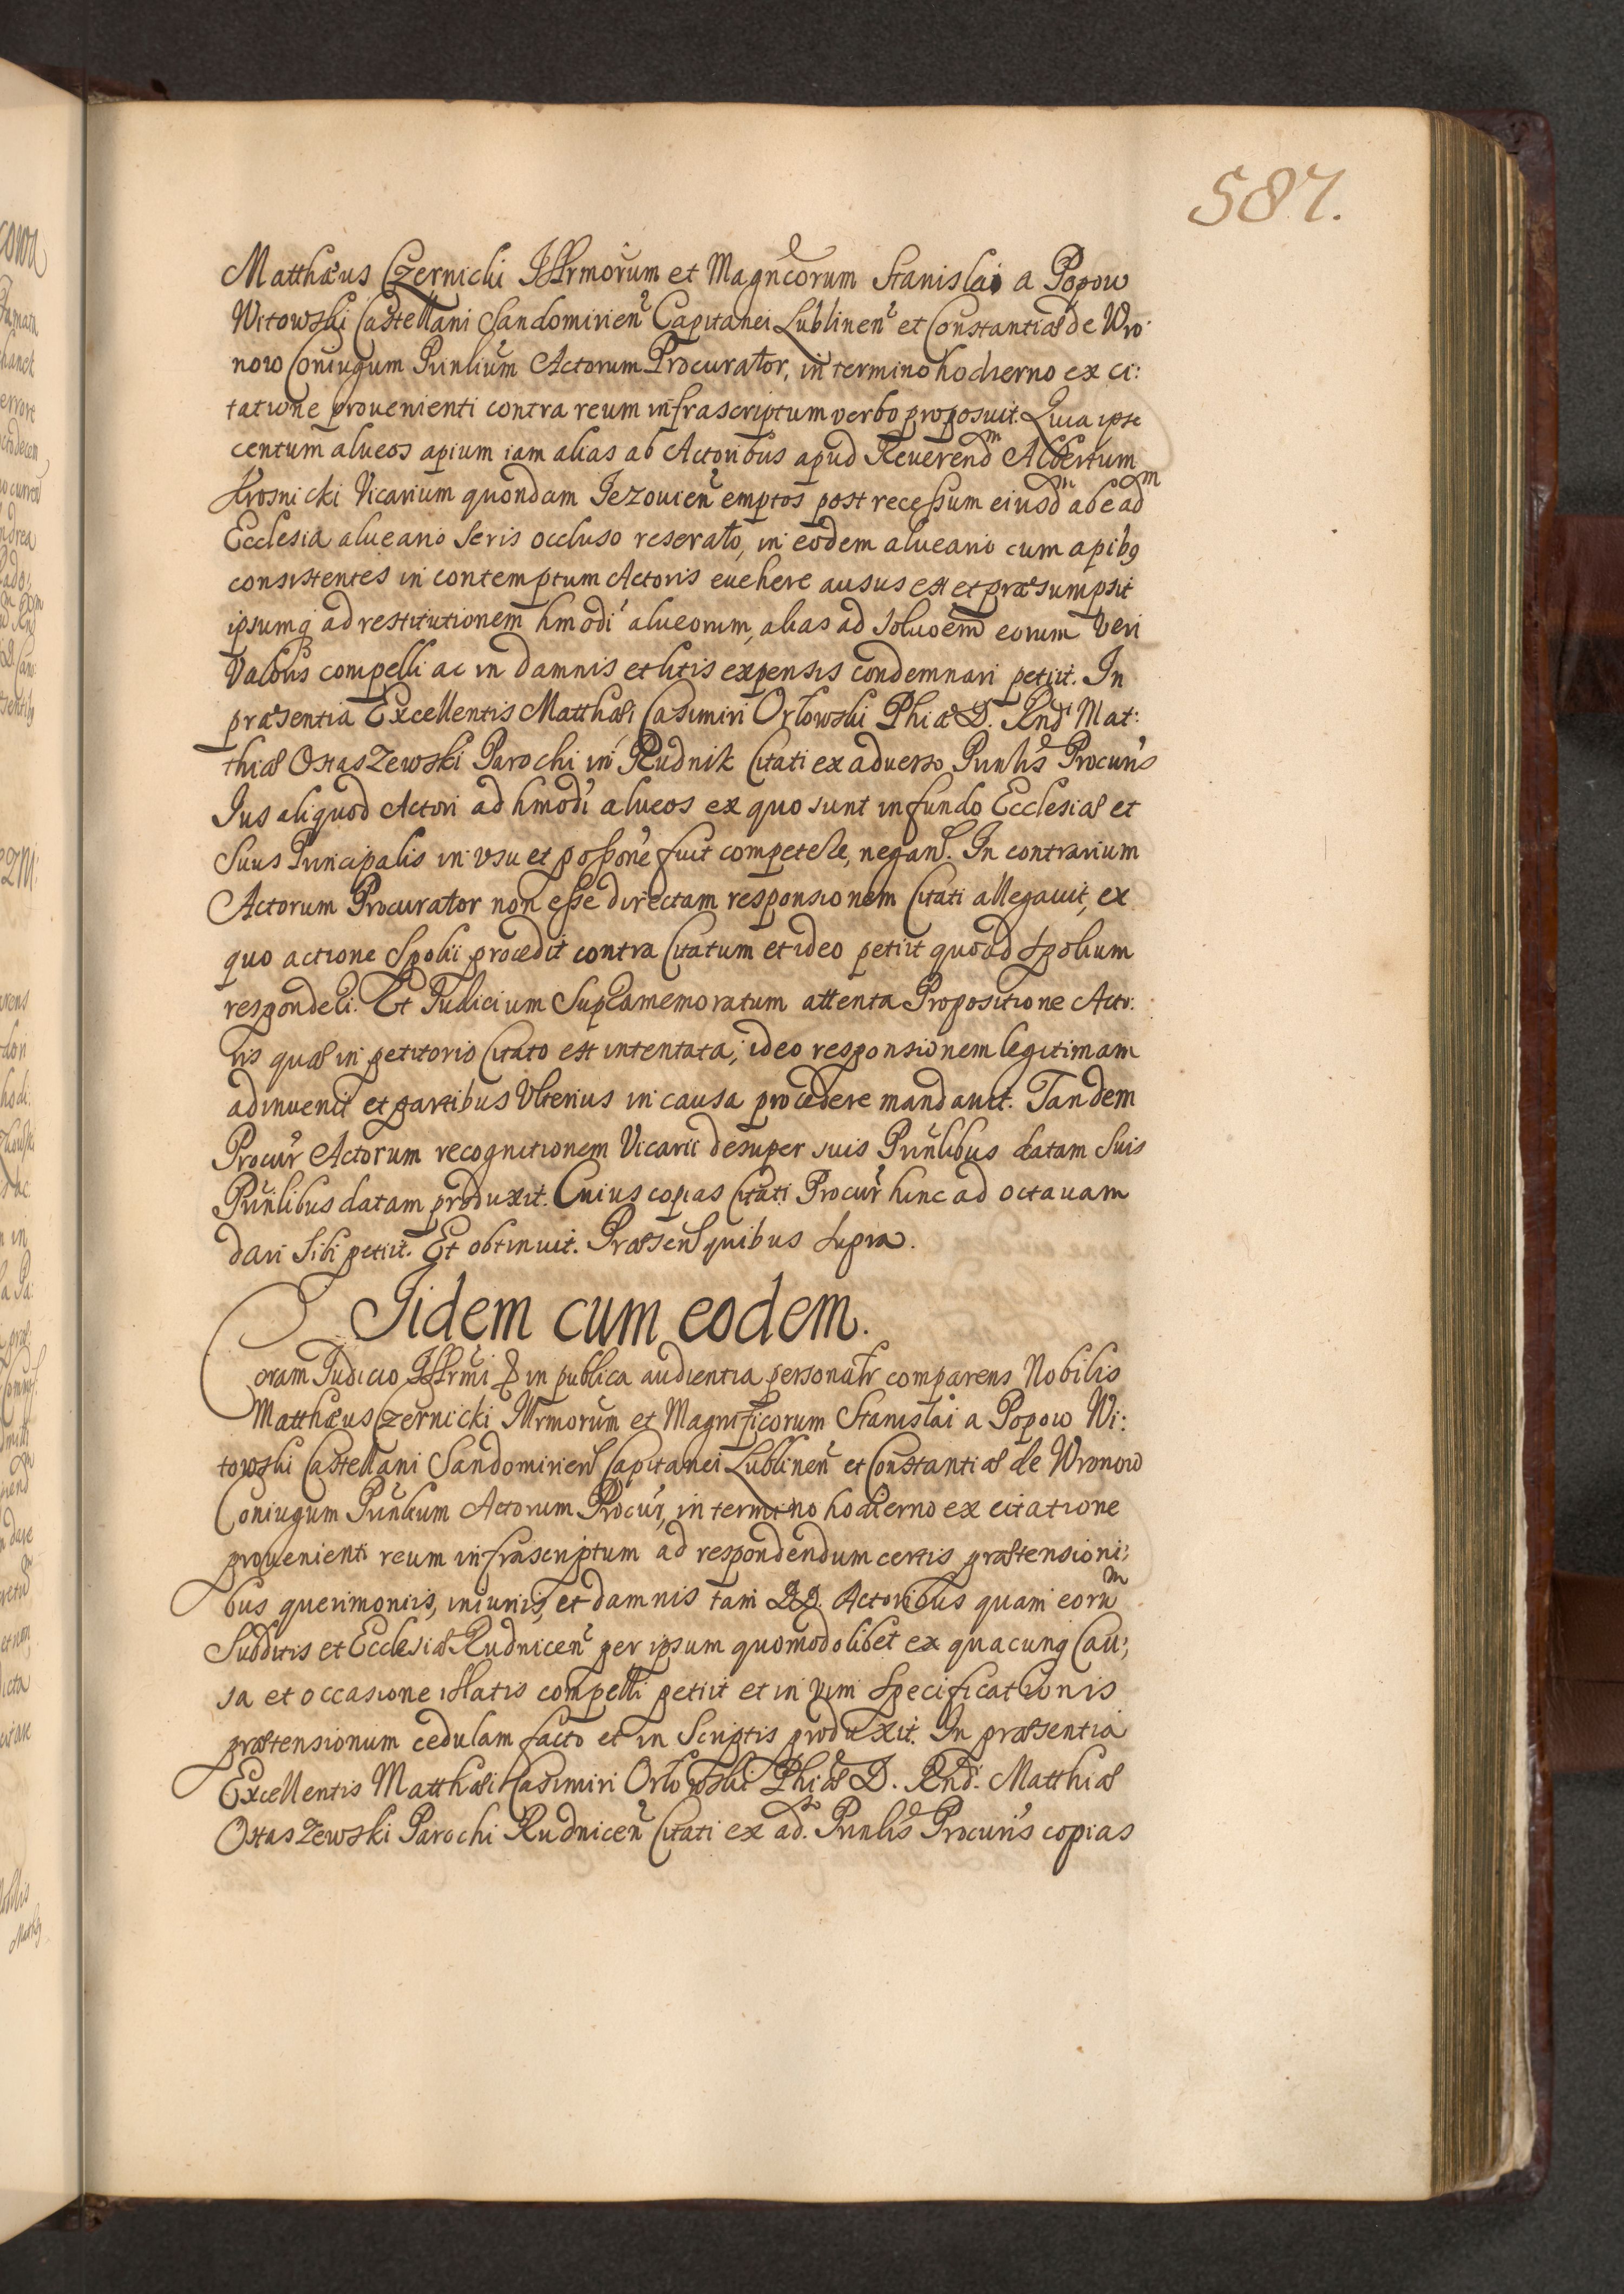 587.
Matthæus Czernicki Illrmorum et Magncorum Stanislai a Popow
Witowski Castellani Sandomirien Capitanei Lublinen et Constantiæ de Wro:
now Coniugum Prinlium Actorum Procurator, in termino hodierno ex ci:
tatione prouenienti contra reum infrascriptum verbo proposuit. Quia ipse
centum alueos apium iam alias ab Actoribus apud Reuerendm Albertum
Krosnicki Vicarium quondam Iezouien emptos post recessum eiusdm ab eadm
Ecclesia alueario seris occluso reserato, in eodem alueario cum apibq
consistentes in contemptum Actoris euehere ausus est et præsumpsit
ipsumq ad restitutionem hmodi alueorum, alias ad soluoem eorum veri
Valoris compelli ac in damnis et litis expensis condemnari petiit. In
præsentia Excellentis Matthæi Casimiri Orłowski Phiæ D. Rndi Mat:
thiæ Ostaszewski Parochi in Rudnik Citati ex aduerso Prinlis Procuris
Ius aliquod Actori ad hmodi alueos ex quo sunt in fundo Ecclesiæ et
Suus Principalis in vsu et possone fuit competere, negans. In contrarium
Actorum Procurator non esse directam responsionem Citati allegauit, ex
quo actione Spolii procedit contra Citatum et ideo petiit quoad Spolium
responderi. Et Iudicium Supramemoratum attenta Propositione Acto:
ris quæ in petitorio Citato est intentata, ideo responsionem legitimam
adinuenit et partibus Vlterius in causa procedere mandauit. Tandem
Procur Actorum recognitionem Vicarii desuper suis Prinlibus datam suis
Prinlibus datam produxit. Cuius copias Citati Procur hinc ad octauam
dari sibi petiit. Et obtinuit. Præsen quibus supra.
Iidem cum eodem.
Coram Iudicio Illrmi & in publica audientia personalr comparens Nobilis
Matthæus Czernicki Illrmorum et Magnificorum Stanislai a Popow Wi:
towski Castellani Sandomirien Capitanei Lublinen et Constantiæ de Wronow
Coniugum Prinlium Actorum Procur, in termino hodierno ex citatione
prouenienti reum infrascriptum ad respondendum certis prætensioni:
bus querimoniis, iniuriis, et damnis tam DD. Actoribus quam eorum
Subditis et Ecclesiæ Rudnicen per ipsum quomodolibet ex quacunq Cau:
sa et occasione illatis compelli petiit et in vim specificationis
prætensionum cedulam facto et in Scriptis produxit. In præsentia
Excellentis Matthæi Casimiri Orłowski Phiæ D. Rndi Matthiæ
Ostaszewski Parochi Rudnicen Citati ex ad. Prinlis Procuris copias